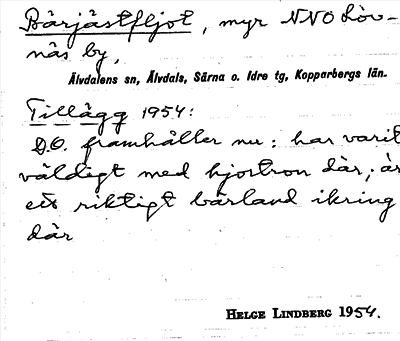 Bärjåstfljot, myr NNO Löv-
näs by,
Älvdalens sn, Älvdals, Särna o. Idre tg, Kopparbergs län.
Tillägg 1954:
D.O. framhåller nu: har varit
väldigt med hjortron där, är
ett riktigt bärland ikring
där
HELGE LINDBERG 1954.